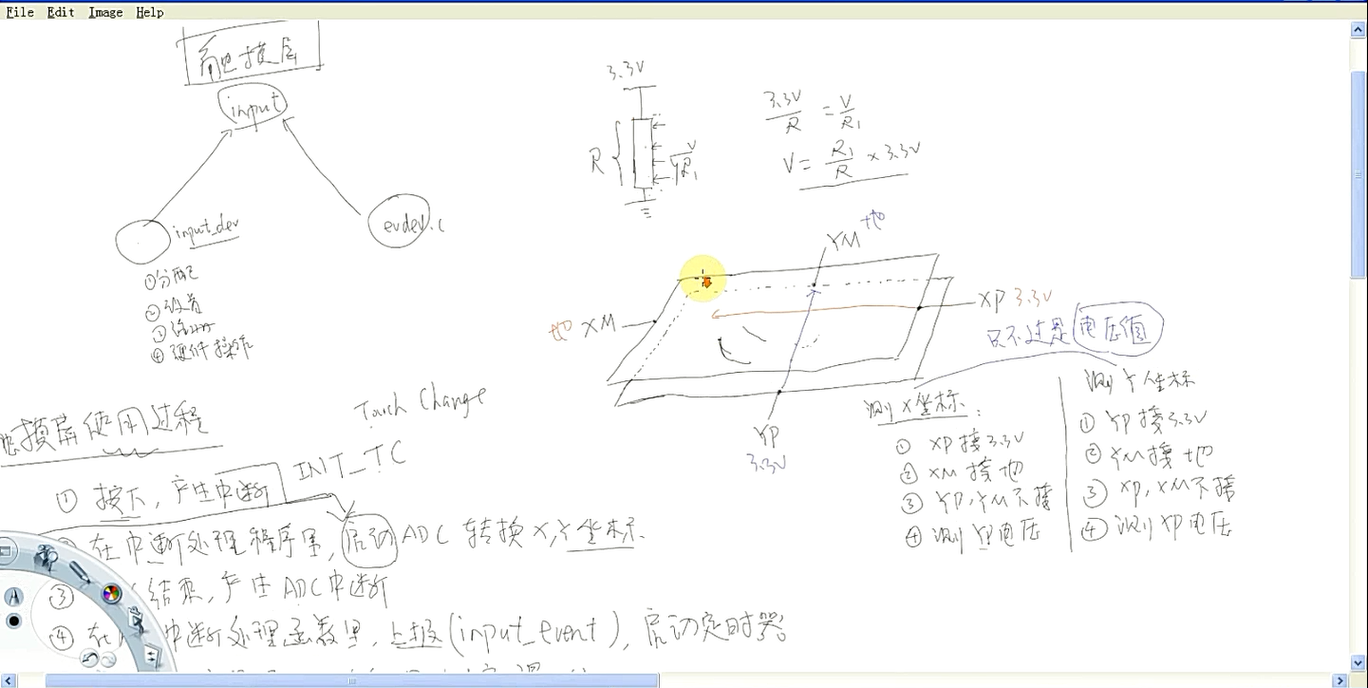 File Edit Image Help
触摸屏
input
input_dev
evdev.c
①分配
②设置
③注册
④硬件操作
3.3V
R
V
R1
3.3V/R = V/R1
V = R1/R × 3.3V
YM 地
XP 3.3V
地 XM
YP
3.3V
只不过是电压值
测X坐标:
① XP接3.3V
② XM接地
③ YP,YM不接
④ 测YP电压
测Y坐标
① YP接3.3V
② YM接地
③ XP,XM不接
④ 测XP电压
摸屏使用过程
Touch Change
INT_TC
① 按下,产生中断
在中断处理程序里,启动ADC转换X,Y坐标
③ 结束,产生ADC中断
④ 在 中断处理函数里,上报(input_event),启动定时器